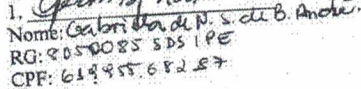 1.
Nome: Gabriella de N. S. de B. André.
RG: 8050085 SDS IPE
CPF: 619955.682 87